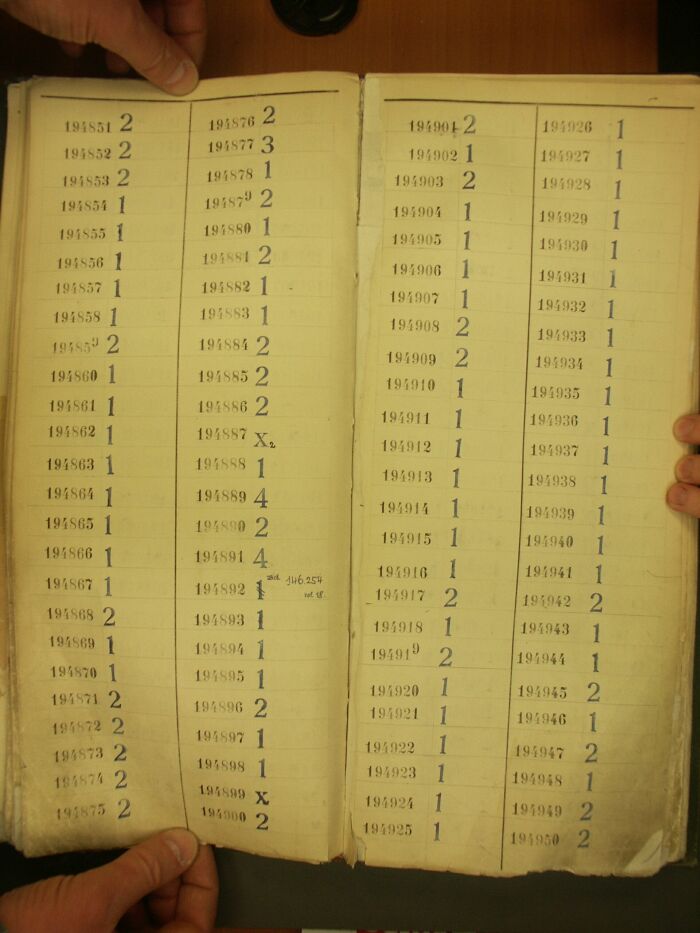 194851 2
194852 2
194853 2
194854 1
194855 1
194856 1
194857 1
194858 1
194859 2
194860 1
194861 1
194862 1
194863 1
194864 1
194865 1
194866 1
194867 1
194868 2
194869 1
194870 1
194871 2
194872 2
194873 2
194874 2
194875 2
194876 2
194877 3
194878 1
194879 2
194880 1
194881 2
194882 1
194883 1
194884 2
194885 2
194886 2
194887 X2
194888 1
194889 4
194890 2
194891 4
194892 1 146.254
194893 1
194894 1
194895 1
194896 2
194897 1
194898 1
194899 X
194900 2
194901 2
194902 1
194903 2
194904 1
194905 1
194906 1
194907 1
194908 2
194909 2
194910 1
194911 1
194912 1
194913 1
194914 1
194915 1
194916 1
194917 2
194918 1
194919 2
194920 1
194921 1
194922 1
194923 1
194924 1
194925 1
194926 1
194927 1
194928 1
194929 1
194930 1
194931 1
194932 1
194933 1
194934 1
194935 1
194936 1
194937 1
194938 1
194939 1
194940 1
194941 1
194942 2
194943 1
194944 1
194945 2
194946 1
194947 2
194948 1
194949 2
194950 2